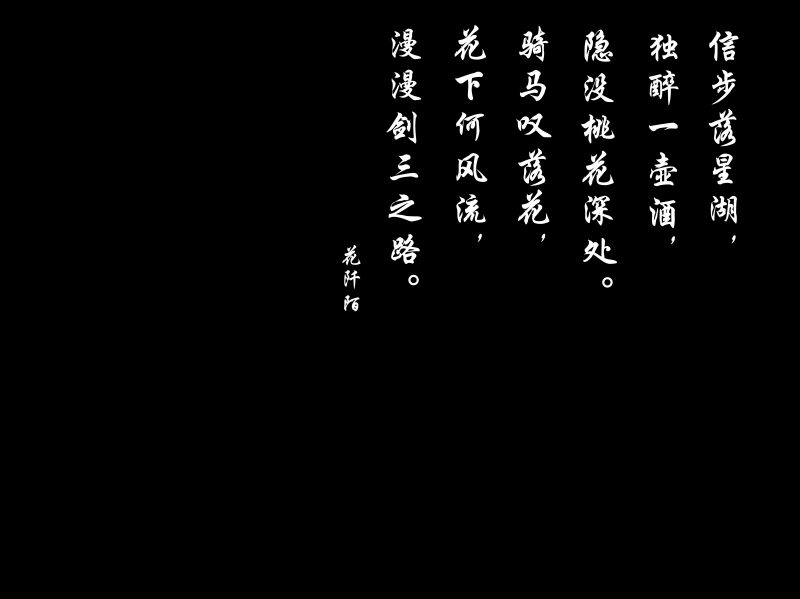 信步落星湖，
独醉一壶酒，
隐没桃花深处。
骑马叹落花，
花下何风流，
漫漫剑三之路。
花阡陌